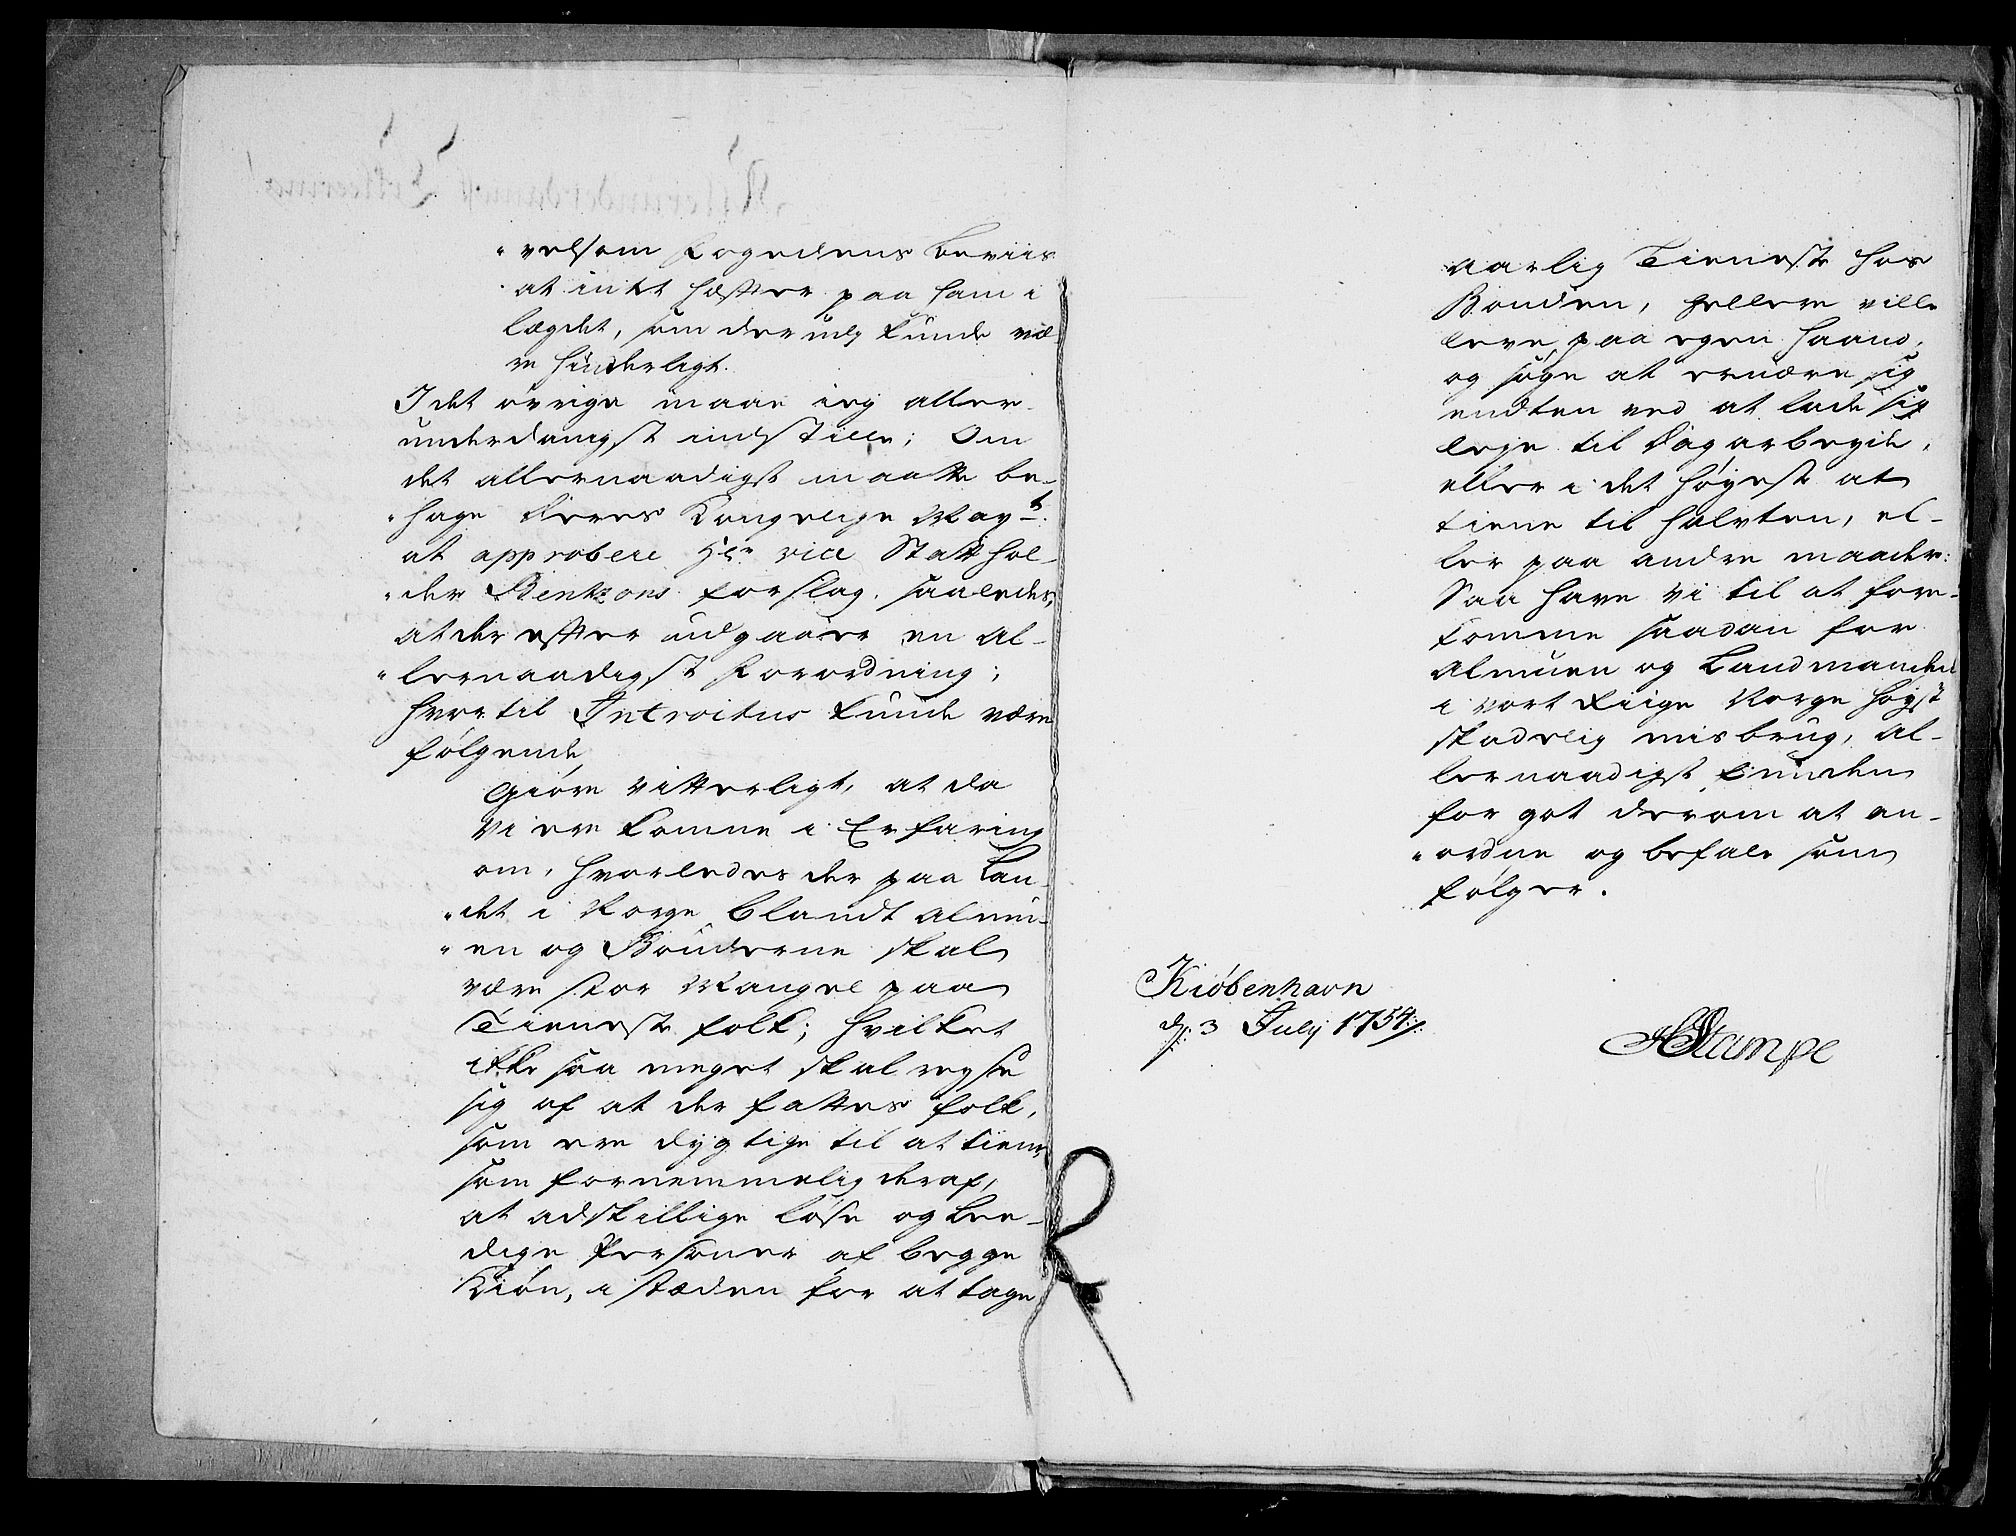 " velsom Fogedens beviis
at intet hæfter paa ham i
lægdet, som derudj kunde væ-
re hinderligt.
I det øvrige maae ieg aller-
underdanigst indstille; Om
det allernaadigst maatte be-
" hage Deres Kongelige Mayt:
at approbere Hr vice Statthol-
" der Bentzons forslag. saaledes,
at der efter udgaaer en al-
" lernaadigst Forordning;
hvortil Introitus kunde være
følgende,
Giøre vitterligt, at da
Vi ere komne i Erfaring
om, hvorledes der paa Lan-
" det i Norge blandt almu-
" en og Bønderne skal
være stor Mangel paa
Tieneste folk; hvilket
ikke saa meget skal reyse
sig af at der fattes folk,
som ere dygtige til at tiene
som fornemmelig deraf,
at adskillige løse og Lee-
dige Personer af begge
Kiøn, i stæden for at tage
aarlig Tieneste hos
Bonden, hellere ville
leve paa egen haand,
og søge at ernære sig
endten ved at lade sig
leje til Dag arbeyde,
eller i det høyeste at
tiene til halvten, el-
ler paa andre maader:
Saa have Vi til at fore-
komme saadan for
Almuen og Landmanden
i vort Riige Norge høyst
skadelig misbrug, al-
lernaadigst funden
for got derom at an-
" ordne og befale som
følger.
Kiøbenhavn
d: 3 July 1754
HStampe